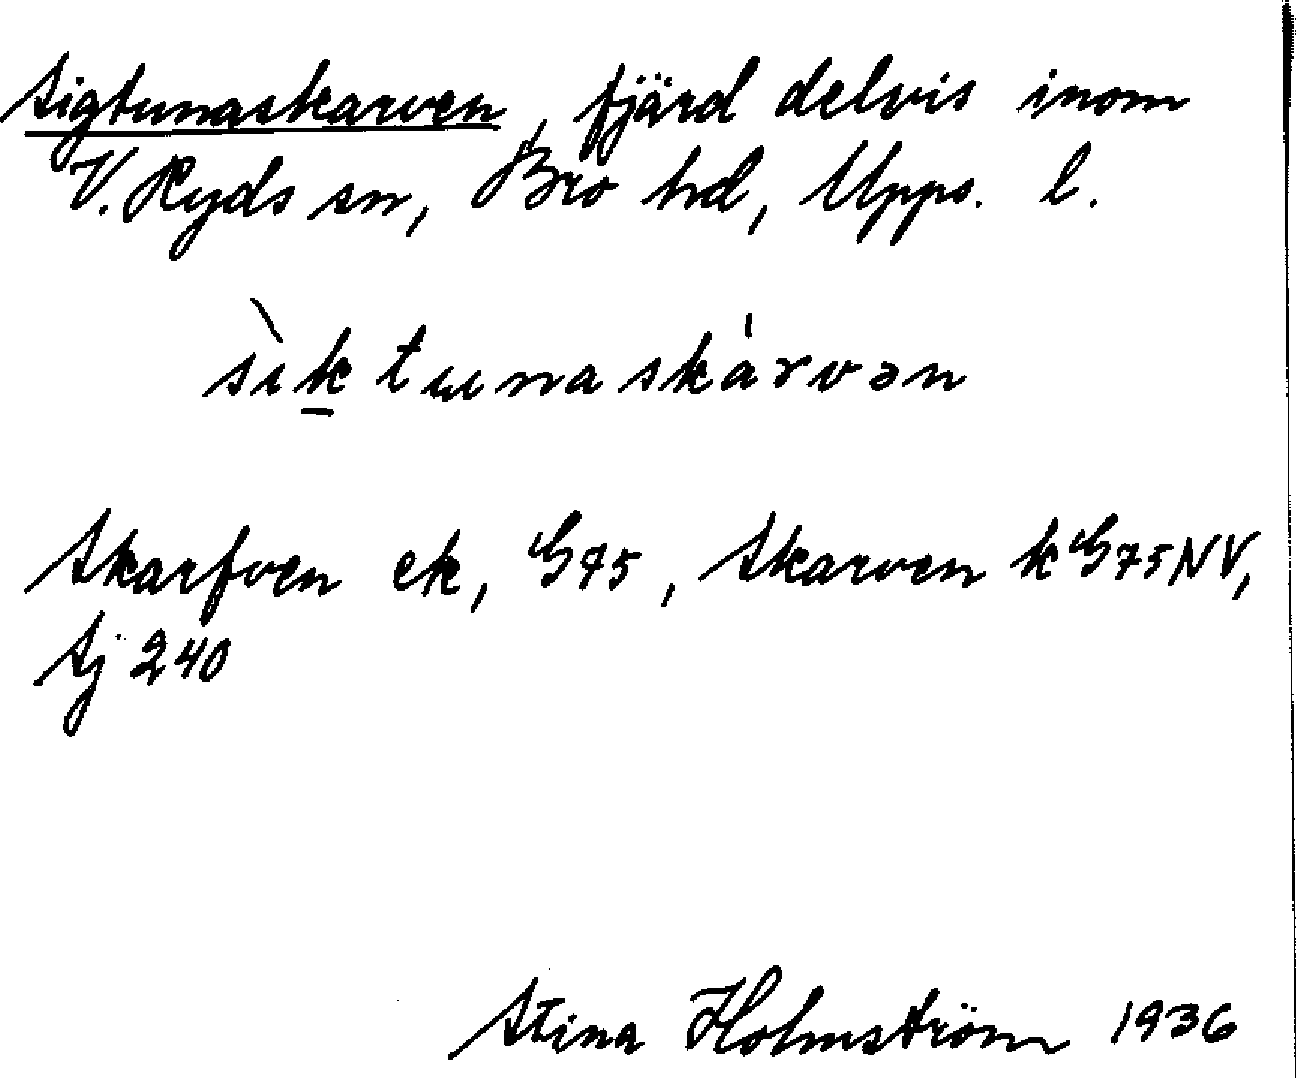 Sigtunaskarven, fjärd delvis inom
V. Ryds sn, Bro hd, Upps. l.
sìktɯnaskárvən
Skarfven ek, G75, Skarven k G75NV,
Sj 240
Stina Holmström 1936